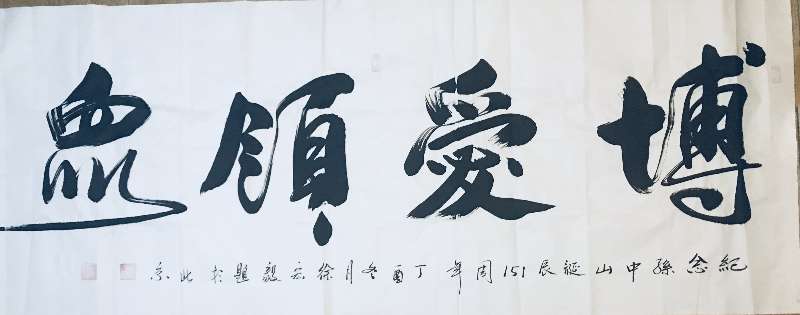 博愛領眾
紀念孫中山誕辰151周年 丁酉冬月徐毅題於北京